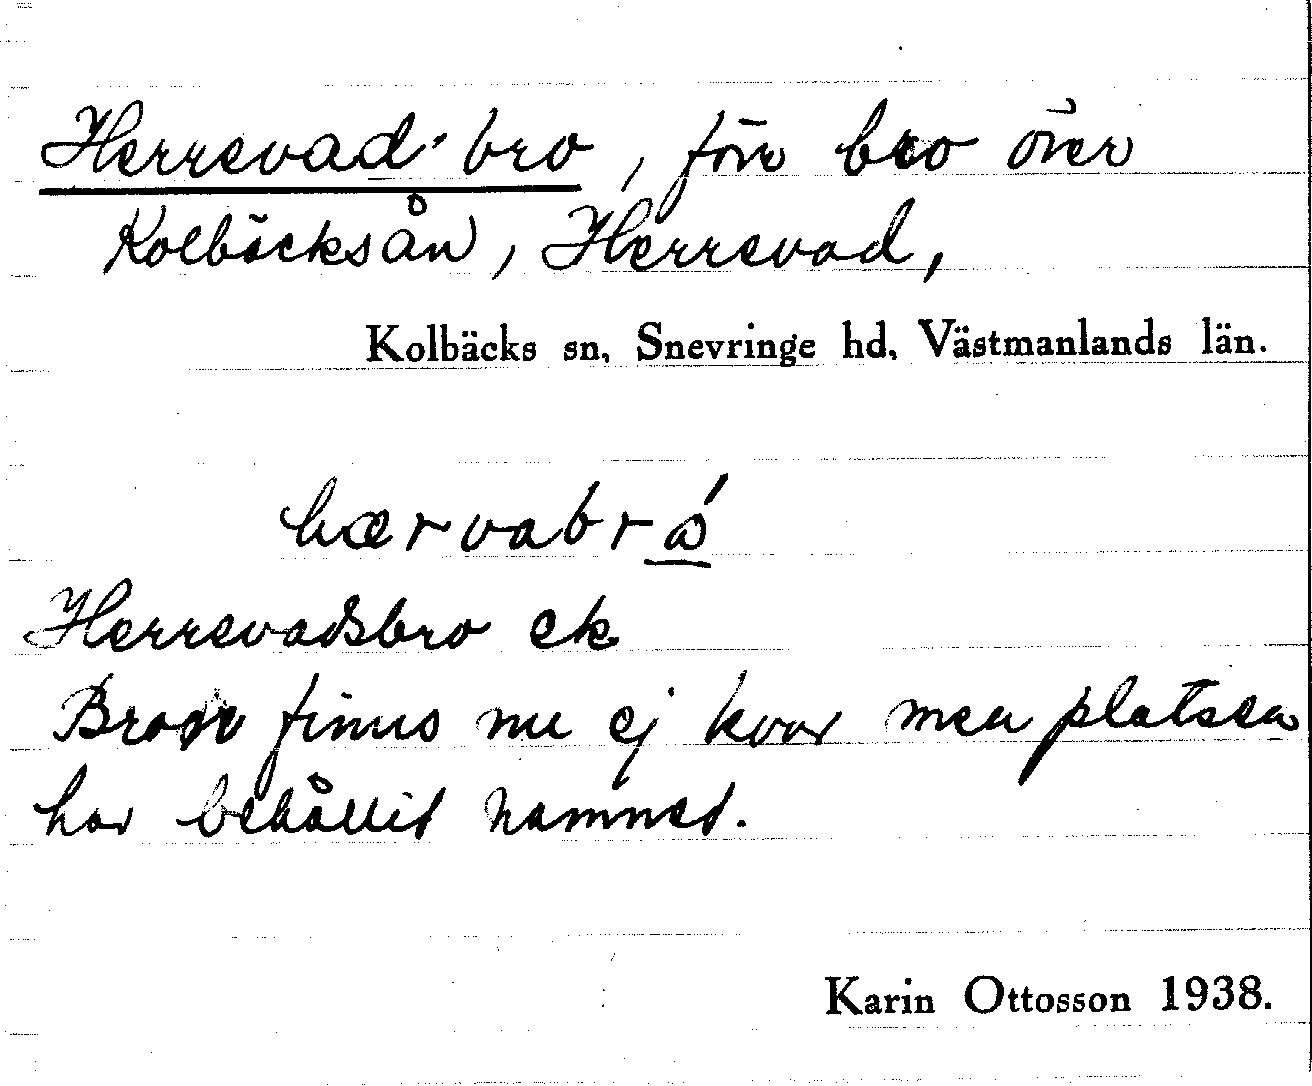 Herrevad·bro, förr bro över
Kolbäcksån, Herrevad,
Kolbäcks sn, Snevringe hd, Västmanlands län.
hærvabró
Herrevadsbro ek
Bron finns nu ej kvar men platsen
har behållit namnet.
Karin Ottosson 1938.